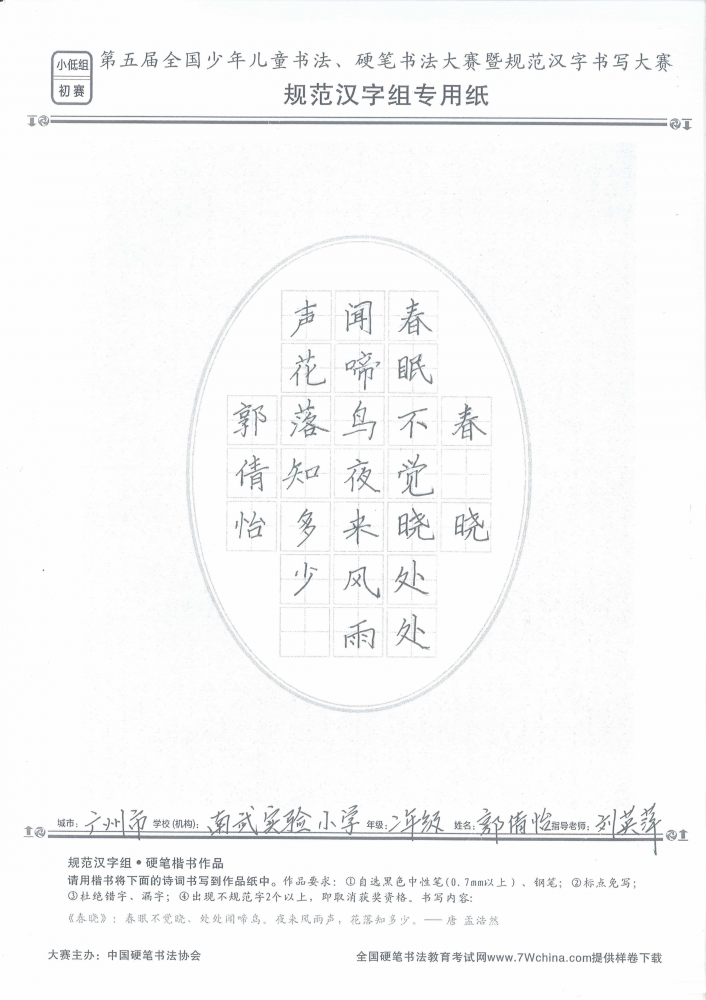 小低组
初赛
第五届全国少年儿童书法、硬笔书法大赛暨规范汉字书写大赛
规范汉字组专用纸
春晓
春眠不觉晓处处
闻啼鸟夜来风雨
声花落知多少
郭倩怡
城市：广州市 学校(机构)：南武实验小学 年级：二年级 姓名：郭倩怡 指导老师：刘英萍
规范汉字组•硬笔楷书作品
请用楷书将下面的诗词书写到作品纸中。作品要求：①自选黑色中性笔(0.7mm以上)、钢笔；②标点免写；
③杜绝错字、漏字；④出现不规范字2个以上，即取消获奖资格。书写内容：
《春晓》：春眠不觉晓，处处闻啼鸟。夜来风雨声，花落知多少。——唐 孟浩然
大赛主办：中国硬笔书法协会
全国硬笔书法教育考试网www.7Wchina.com提供样卷下载